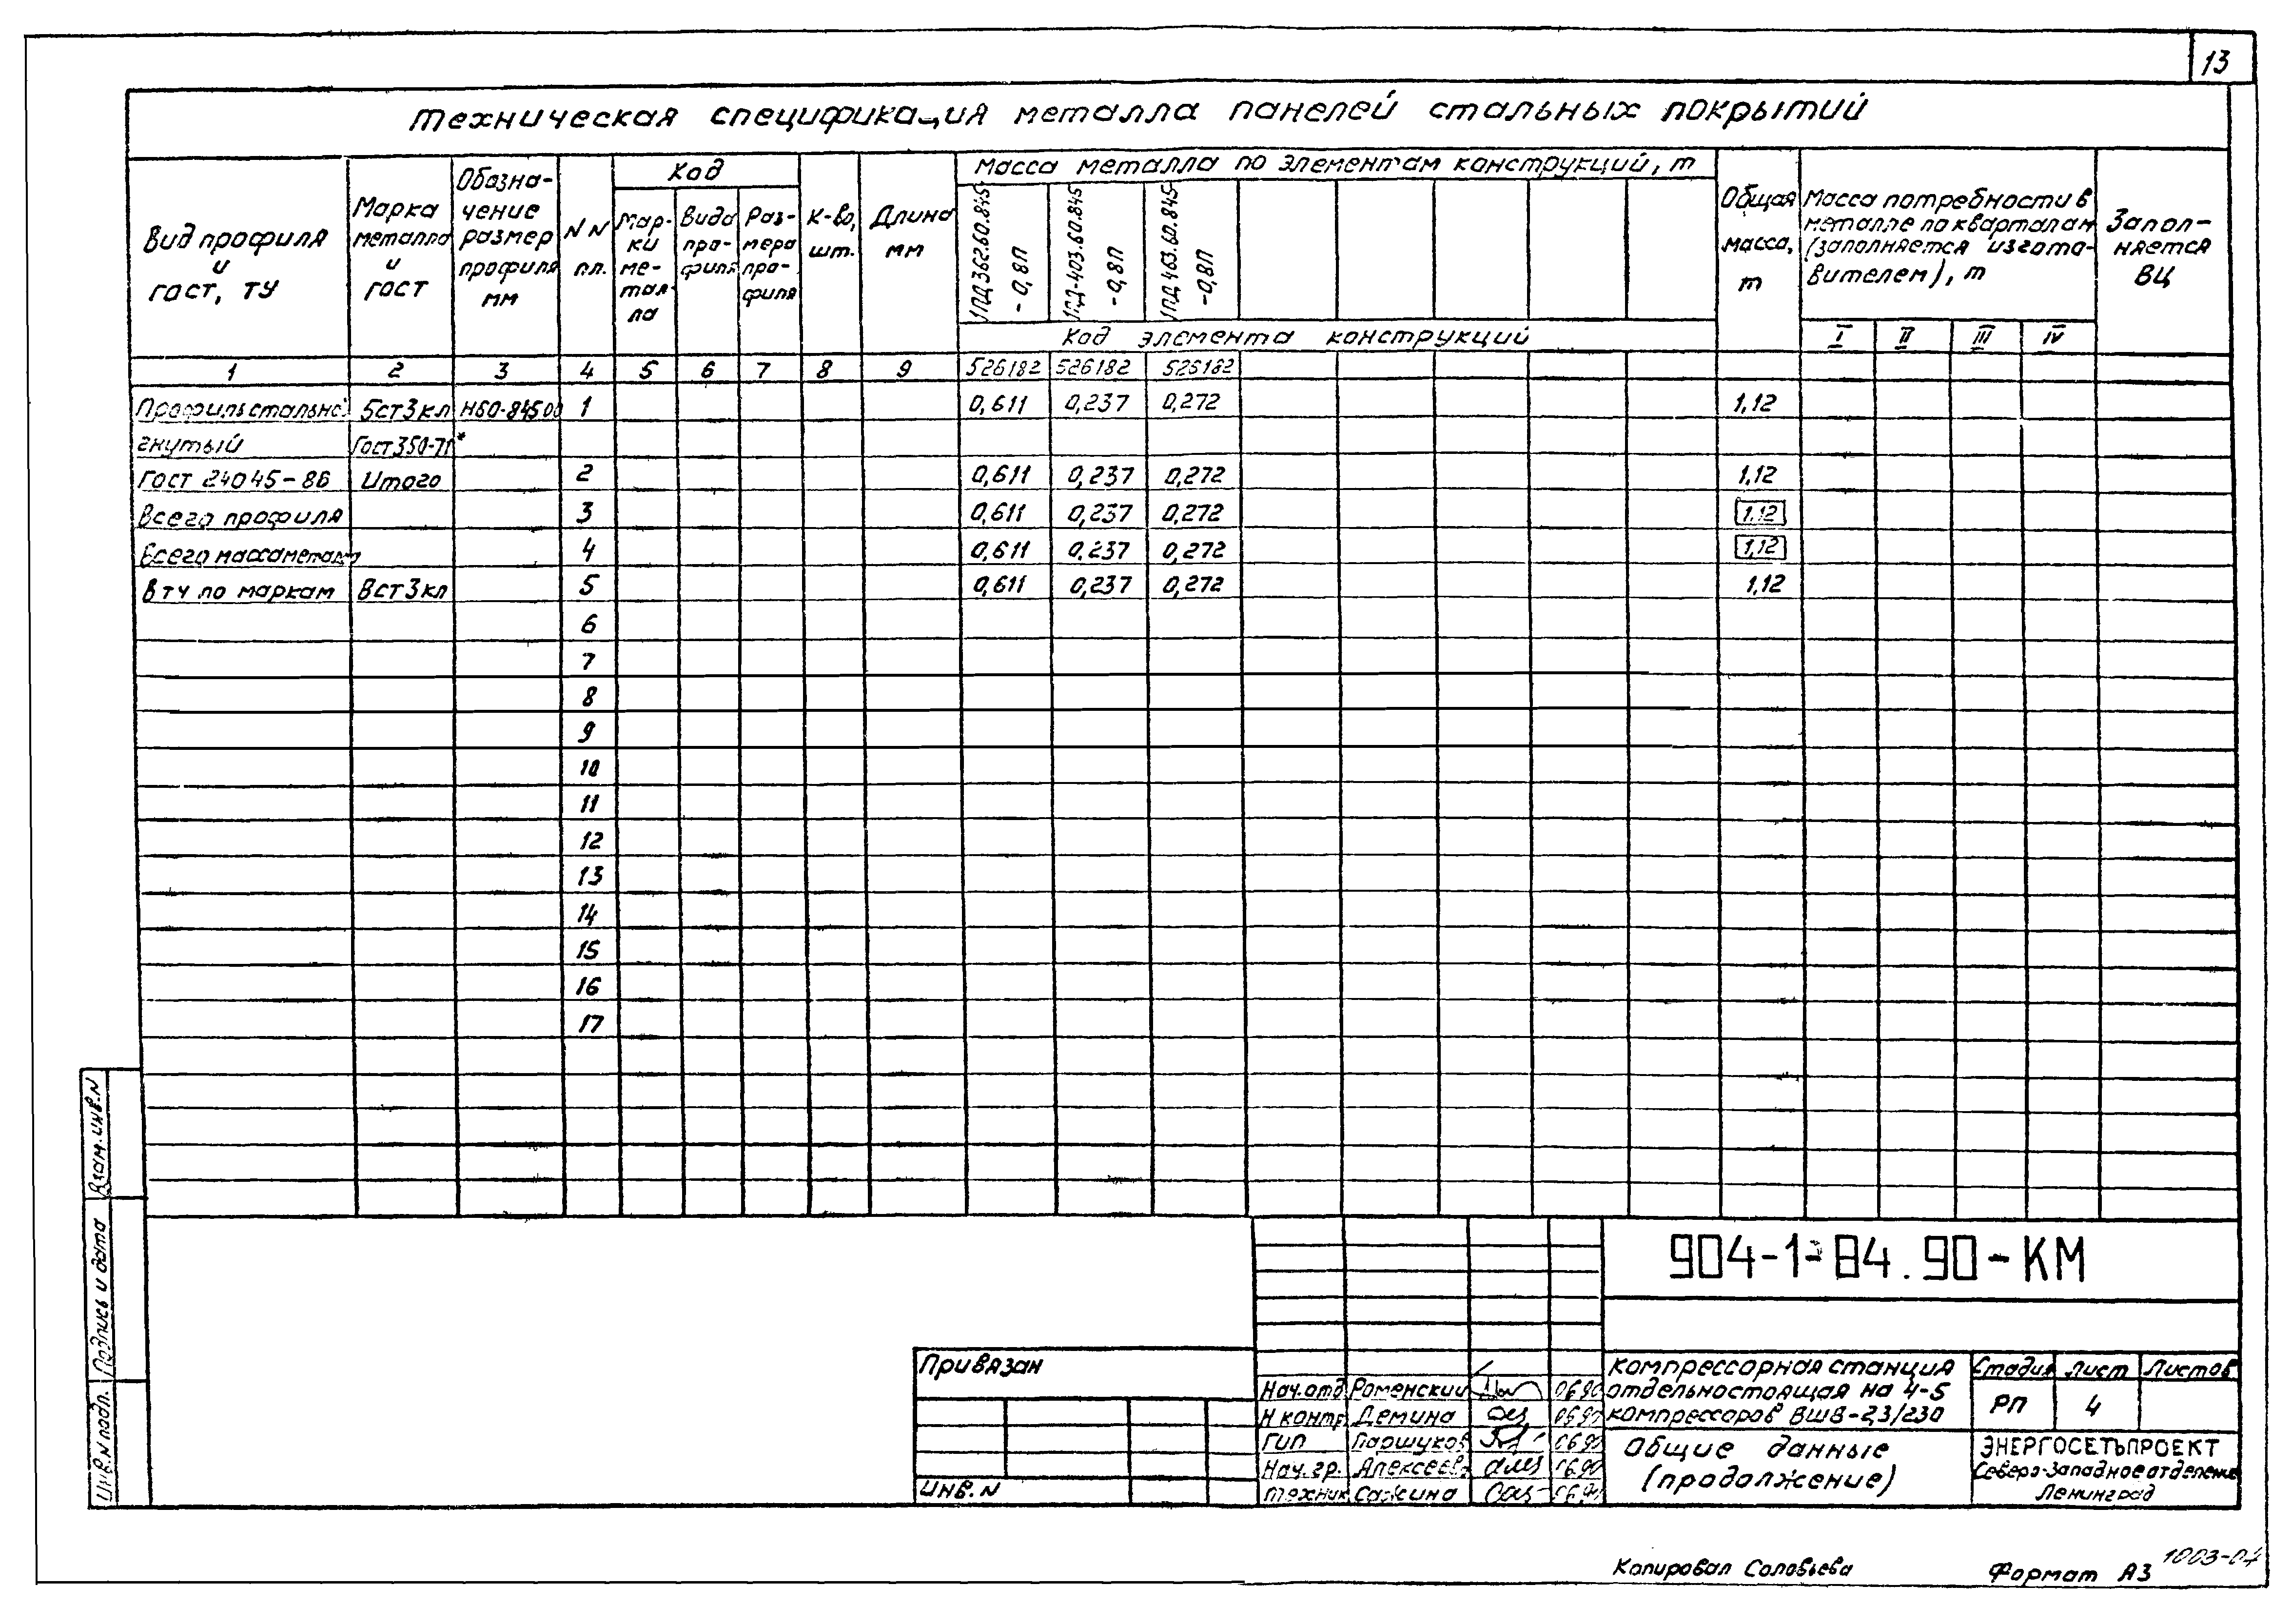 13
Техническая спецификация металла панелей стальных покрытий
Вид профиля
и
гост, ТУ
Марка
металла
и
гост
Обозна-
чение
размер
профиля
мм
NN
пп.
Код
Мар-
ки
ме-
тал-
ла
Вида
про-
филя
Раз-
мера
про-
филя
К-во,
шт.
Длина
мм
Масса металла по элементам конструкций, т
1ПД362.60.845
-0,8П
1ПД-403.60.845
-0,8П
1ПД463.60.845
-0,8П
Код элемента конструкций
Общая
масса,
т
Масса потребности в
металле по кварталам
(заполняется изгото-
вителем), т
I II III IV
Запол-
няется
ВЦ
1 2 3 4 5 6 7 8 9 526182 526182 526182
Профиль стально Бст3кл Н60-845 1 0,611 0,237 0,272 1,12
гнутый Гост 350-71*
Гост 24045-86 Итого 2 0,611 0,237 0,272 1,12
Всего профиля 3 0,611 0,237 0,272 1,12
Всего масса металл 4 0,611 0,237 0,272 1,12
В тч по маркам Вст3кл 5 0,611 0,237 0,272 1,12
6
7
8
9
10
11
12
13
14
15
16
17
Взам. инв. N
Подпись и дата
Инв. N подл.
904-1-84.90-КМ
Привязан
Инв. N
Нач.отд Роменский 06.90
Н контр Демина 06.90
ГИП Паршуков 06.90
Нач. гр. Алексеева 06.90
Техник Сажина 06.90
Компрессорная станция
отдельностоящая на 4-5
компрессоров ВШВ-2,3/230
Стадия Лист Листов
РП 4
Общие данные
(продолжение)
ЭНЕРГОСЕТЬПРОЕКТ
Северо-Западное отделение
Ленинград
Копировал Соловьева
Формат А3
1003-04